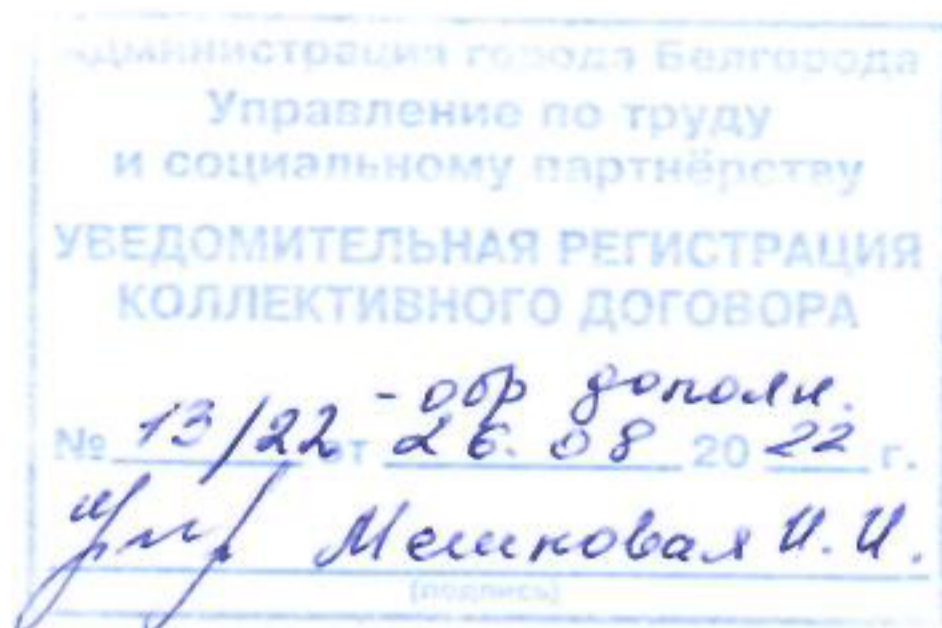 Администрация города Белгорода
Управление по труду
и социальному партнёрству
УВЕДОМИТЕЛЬНАЯ РЕГИСТРАЦИЯ
КОЛЛЕКТИВНОГО ДОГОВОРА
- обр дополн.
№ 13/22 от 26.08 2022 г.
Мешковая И.И.
(подпись)